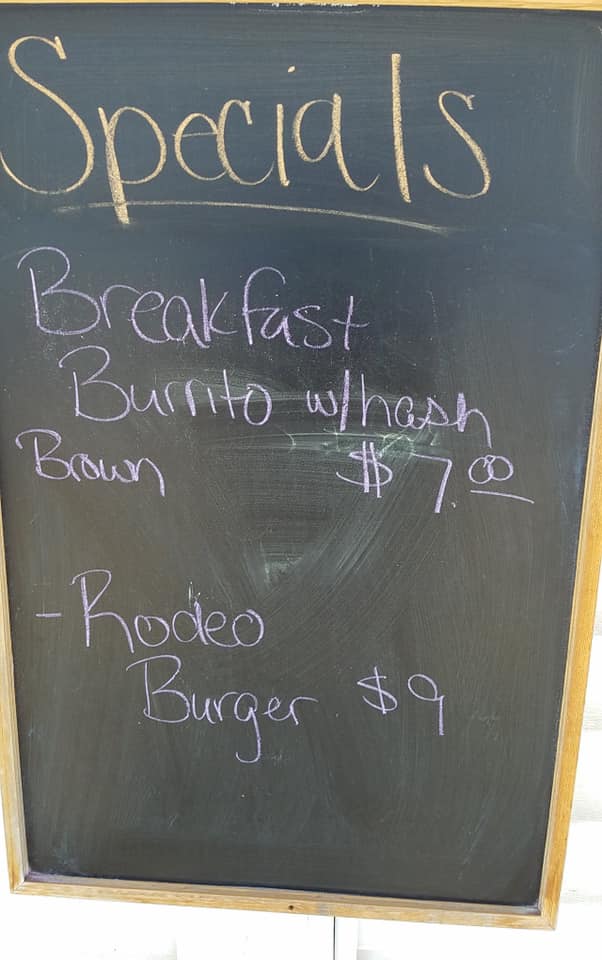 Specials
Breakfast
Burrito w/hash
Brown $7.00
- Rodeo
Burger $9